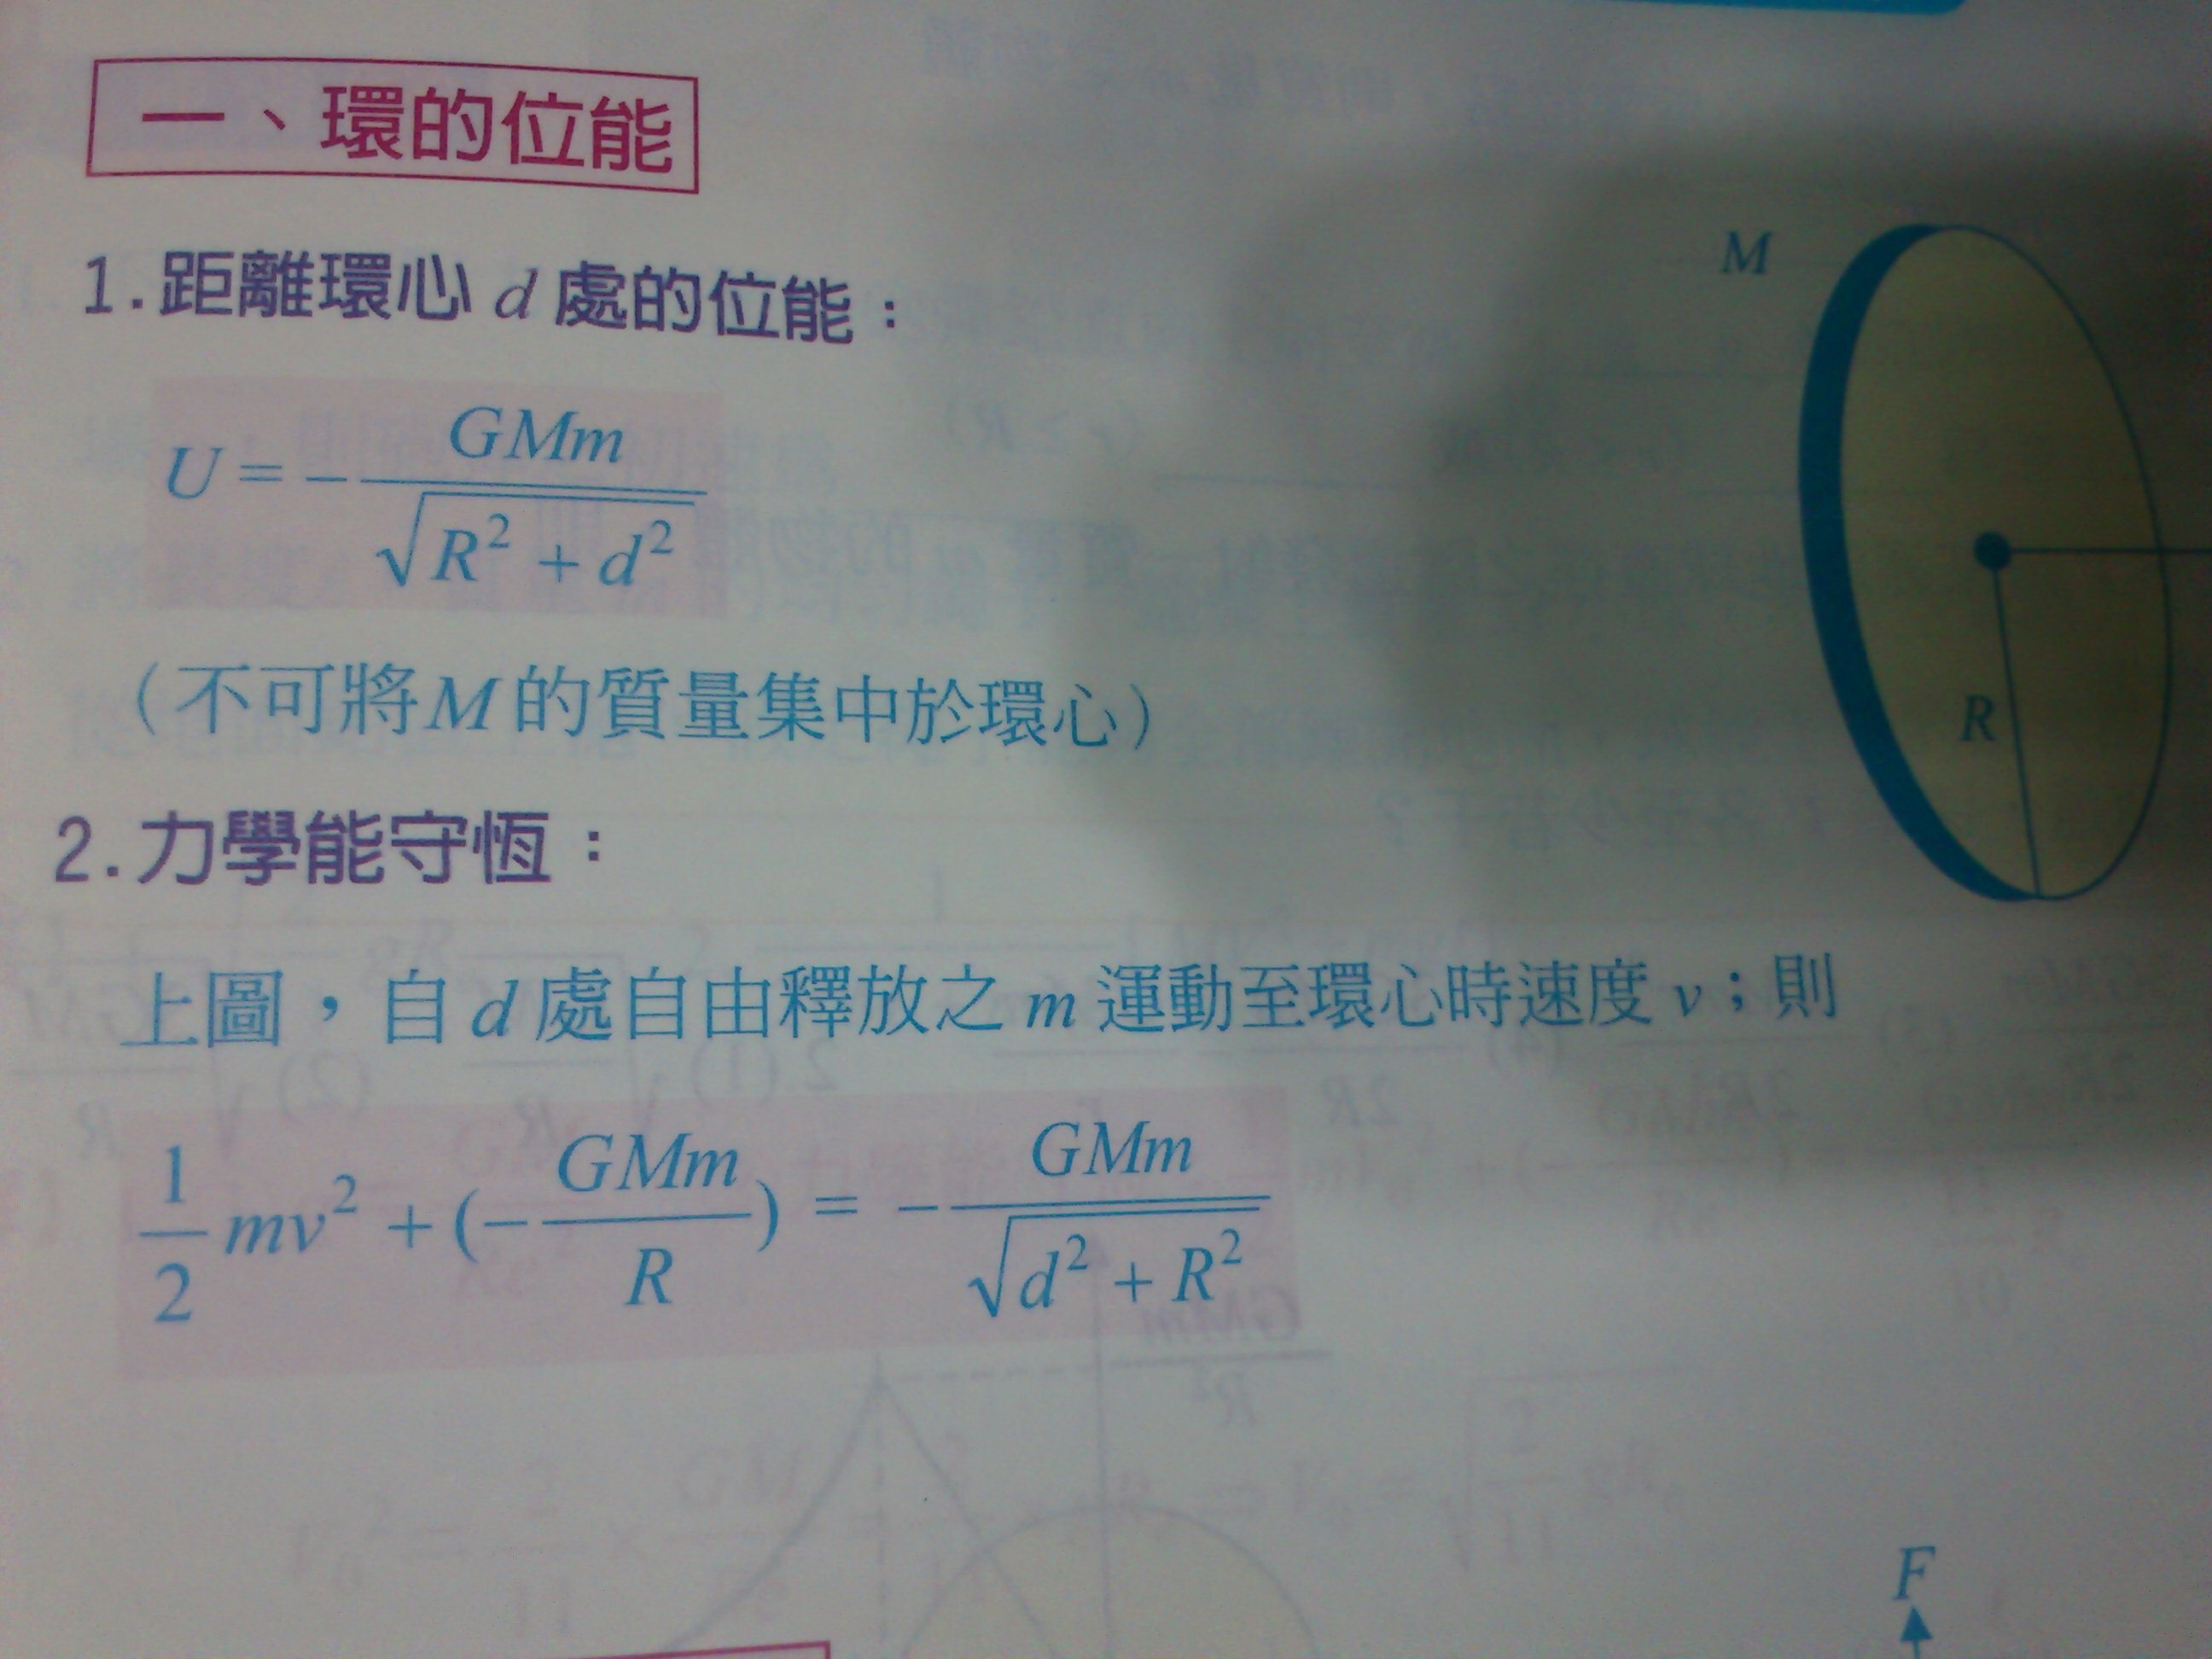 一、環的位能
M
1.距離環心 d 處的位能：
U = - \frac{GMm}{\sqrt{R^2 + d^2}}
R
（不可將M的質量集中於環心）
2.力學能守恆：
上圖，自 d 處自由釋放之 m 運動至環心時速度 v；則
\frac{1}{2} mv^2 + (-\frac{GMm}{R}) = -\frac{GMm}{\sqrt{d^2 + R^2}}
F